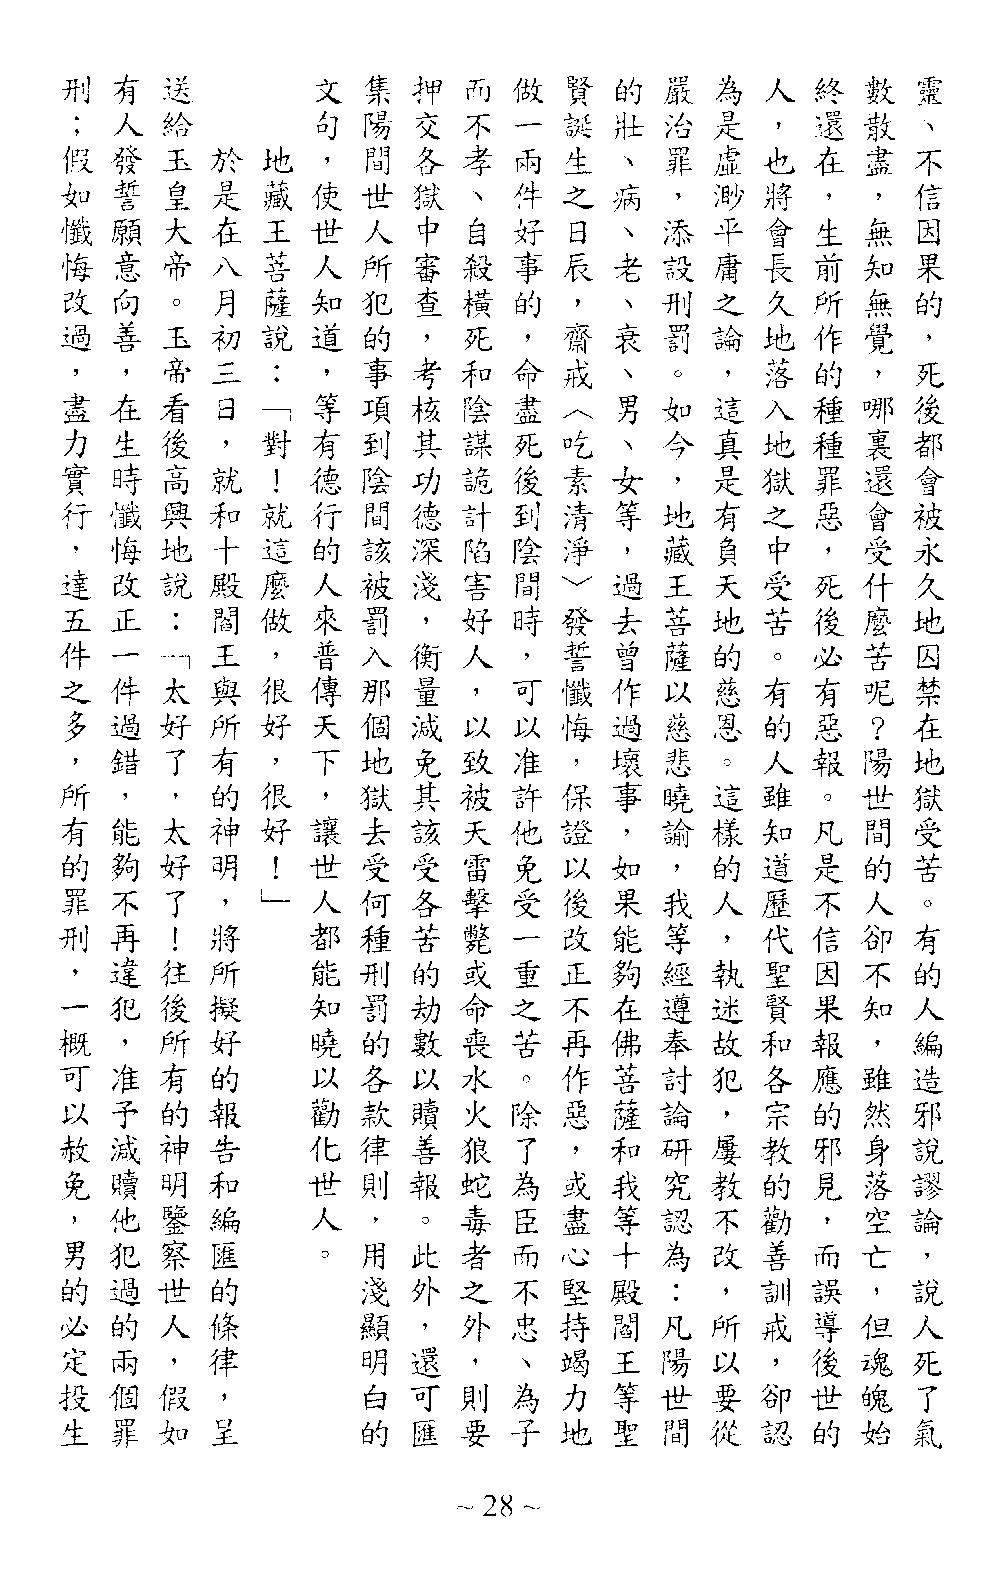 靈、不信因果的，死後都會被永久地囚禁在地獄受苦。有的人編造邪說謬論，說人死了氣
數散盡，無知無覺，哪裏還會受什麼苦呢？陽世間的人卻不知，雖然身落空亡，但魂魄始
終還在，生前所作的種種罪惡，死後必有惡報。凡是不信因果報應的邪見，而誤導後世的
人，也將會長久地落入地獄之中受苦。有的人雖知道歷代聖賢和各宗教的勸善訓戒，卻認
為是虛渺平庸之論，這真是有負天地的慈恩。這樣的人，執迷故犯，屢教不改，所以要從
嚴治罪，添設刑罰。如今，地藏王菩薩以慈悲曉諭，我等經遵奉討論研究認為：凡陽世間
的壯、病、老、衰、男、女等，過去曾作過壞事，如果能夠在佛菩薩和我等十殿閻王等聖
賢誕生之日辰，齋戒︿吃素清淨﹀發誓懺悔，保證以後改正不再作惡，或盡心堅持竭力地
做一兩件好事的，命盡死後到陰間時，可以准許他免受一重之苦。除了為臣而不忠、為子
而不孝、自殺橫死和陰謀詭計陷害好人，以致被天雷擊斃或命喪水火狼蛇毒者之外，則要
押交各獄中審查，考核其功德深淺，衡量減免其該受各苦的劫數以贖善報。此外，還可匯
集陽間世人所犯的事項到陰間該被罰入那個地獄去受何種刑罰的各款律則，用淺顯明白的
文句，使世人知道，等有德行的人來普傳天下，讓世人都能知曉以勸化世人。
地藏王菩薩說：「對！就這麼做，很好，很好！」
於是在八月初三日，就和十殿閻王與所有的神明，將所擬好的報告和編匯的條律，呈
送給玉皇大帝。玉帝看後高興地說：「太好了，太好了！往後所有的神明鑒察世人，假如
有人發誓願意向善，在生時懺悔改正一件過錯，能夠不再違犯，准予減贖他犯過的兩個罪
刑；假如懺悔改過，盡力實行，達五件之多，所有的罪刑，一概可以赦免，男的必定投生
~ 28 ~